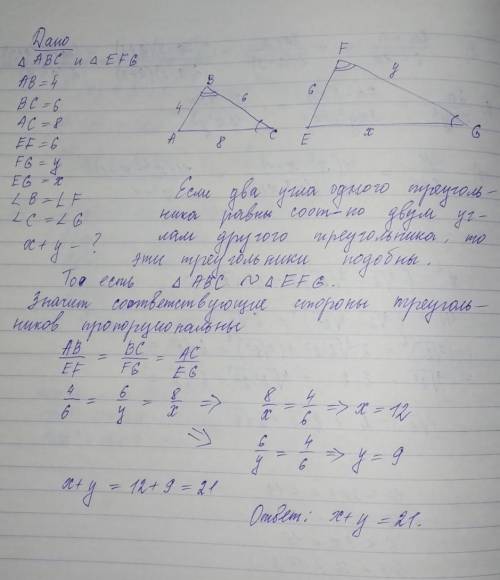 Дано
△ABC и △EFG
AB=4
BC=6
AC=8
EF=6
FG=y
EG=x
∠B=∠F
∠C=∠G
x+y-?
B
4
6
A
8
C
F
6
y
E
x
G
Если два угла одного треуголь-
ника равны соот-но двум уг-
лам другого треугольника, то
эти треугольники подобны.
То есть △ABC ~ △EFG.
Значит соответствующие стороны треуголь-
ников пропорциональны
AB/EF = BC/FG = AC/EG
4/6 = 6/y = 8/x ⇒ 8/x = 4/6 ⇒ x=12
⇒ 6/y = 4/6 ⇒ y=9
x+y = 12+9 = 21
Ответ: x+y = 21.